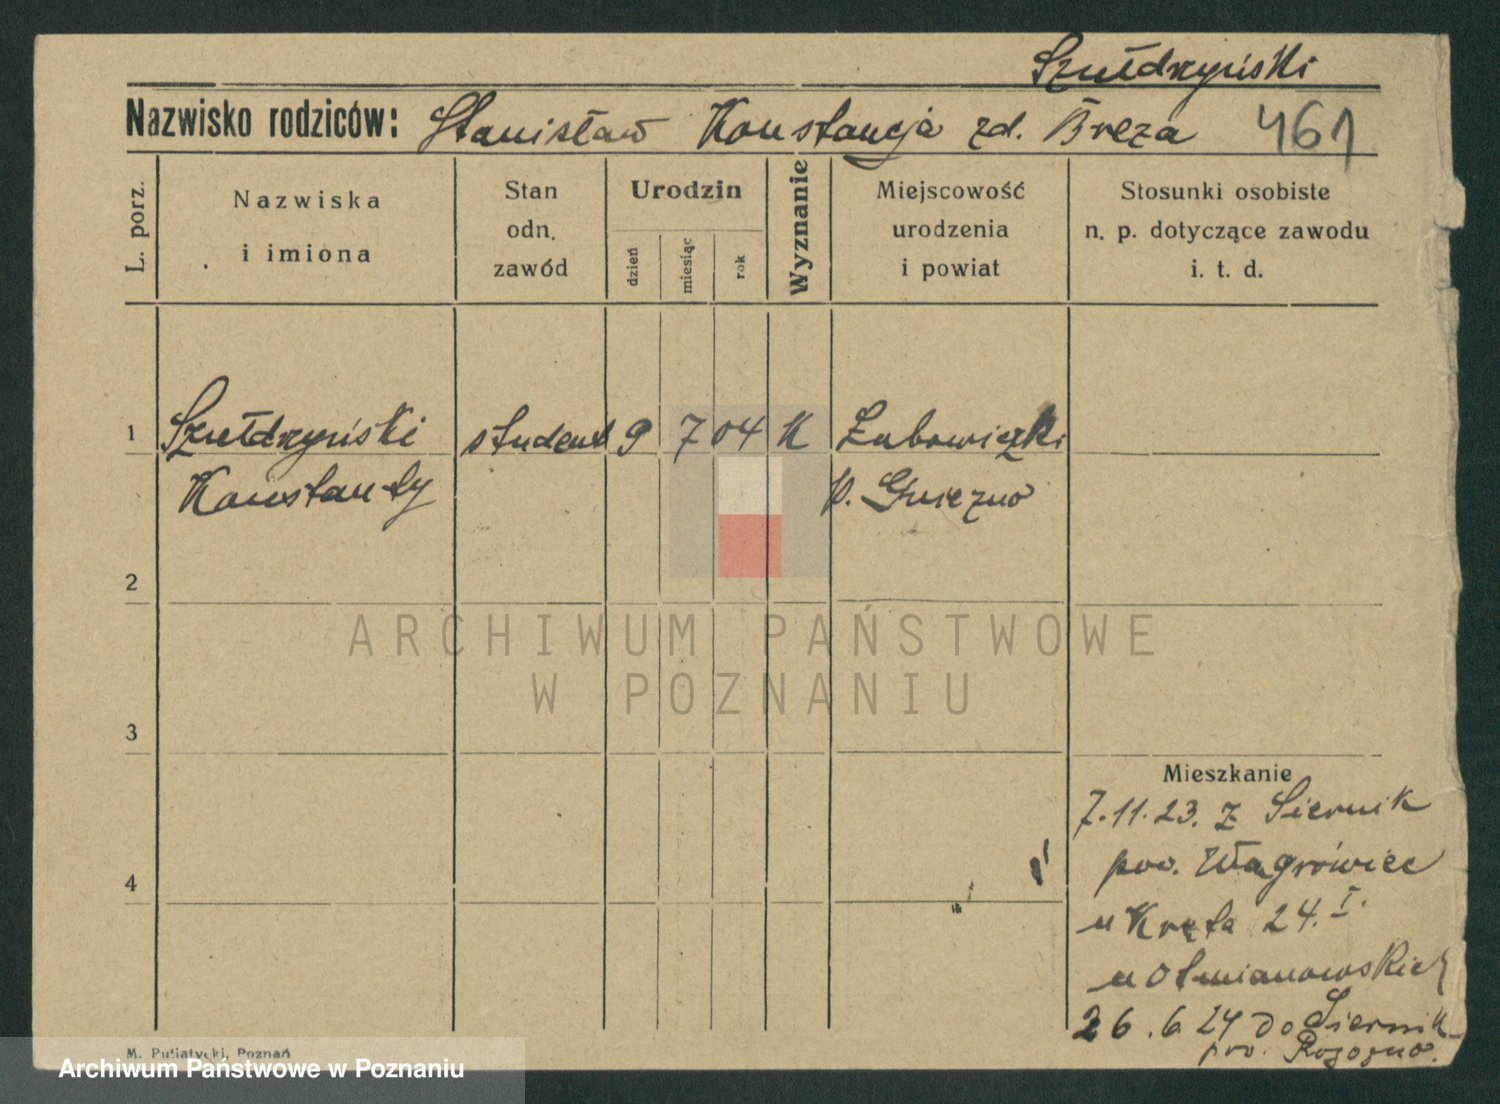 Szułdrzyński
Nazwisko rodziców: Stanisław Konstancja zd. Breza 461
L. porz.
Nazwiska
i imiona
Stan
odn.
zawód
Urodzin
dzień
miesiąc
rok
Wyznanie
Miejscowość
urodzenia
i powiat
Stosunki osobiste
n. p. dotyczące zawodu
i. t. d.
1 Szułdrzyński student 9 7 04 K Lubowiczki
Konstanty p. Gniezno
2
ARCHIWUM PAŃSTWOWE
W POZNANIU
3
Mieszkanie
7.11.23. z Siernik
pow. Wągrówiec
4
u Kręta 24. I.
u Otmianowskich
26.6.24 do Siernik
pow. Rogozno.
M. Putiatycki, Poznań
Archiwum Państwowe w Poznaniu